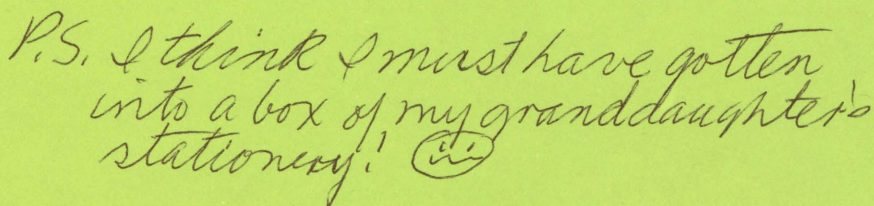 P.S. I think I must have gotten
into a box of my granddaughter's
stationery!